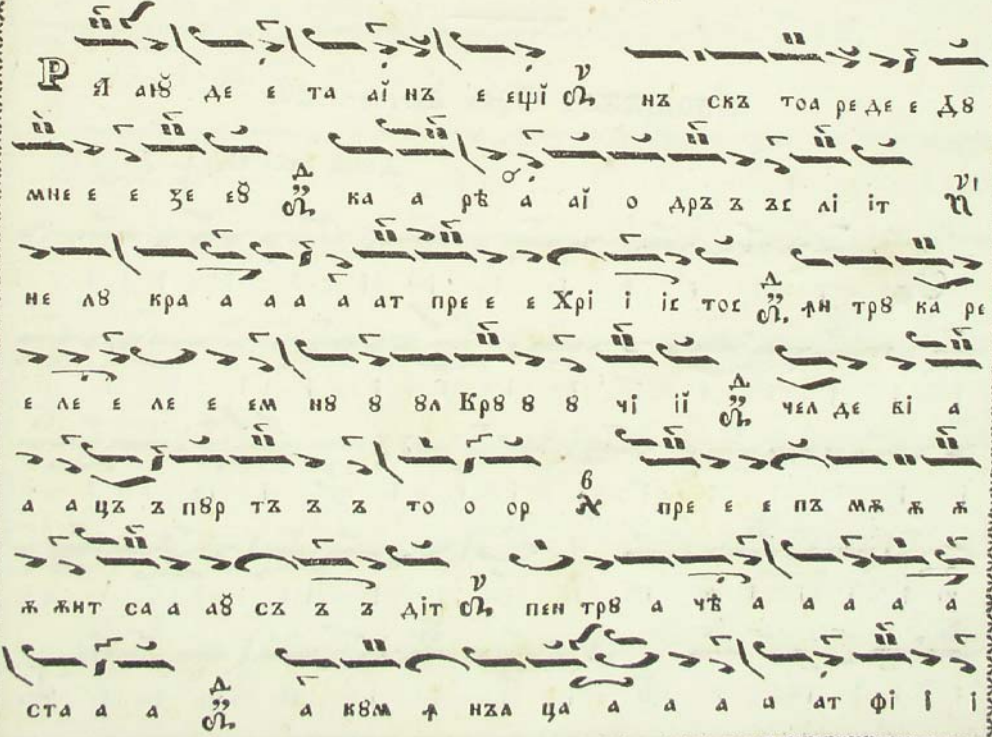 Р Ꙗ аıꙋ̆ де е та аĭ нъ е ещĭ нъ скъ тоа ре де е Дꙋ
мне е е ѕе еꙋ̆ ка а рѣ а аĭ о дръ ъ ъс лі іт
не лꙋ кра а а а а ат пре е е Хрі і іс тос ꙟн трꙋ ка ре
е ле е ле е ем нꙋ ꙋ ꙋл Крꙋ ꙋ ꙋ чі її чел де ві а
а а цъ ъ пꙋр тъ ъ ъ то о ор пре е е пъ мѫ ѫ ѫ
ѫ ѫнт са а аꙋ̆ съ ъ ъ діт пен трꙋ а чѣ а а а а а
ста а а а кꙋм ꙟ нъл ца а а а а ат фі і і